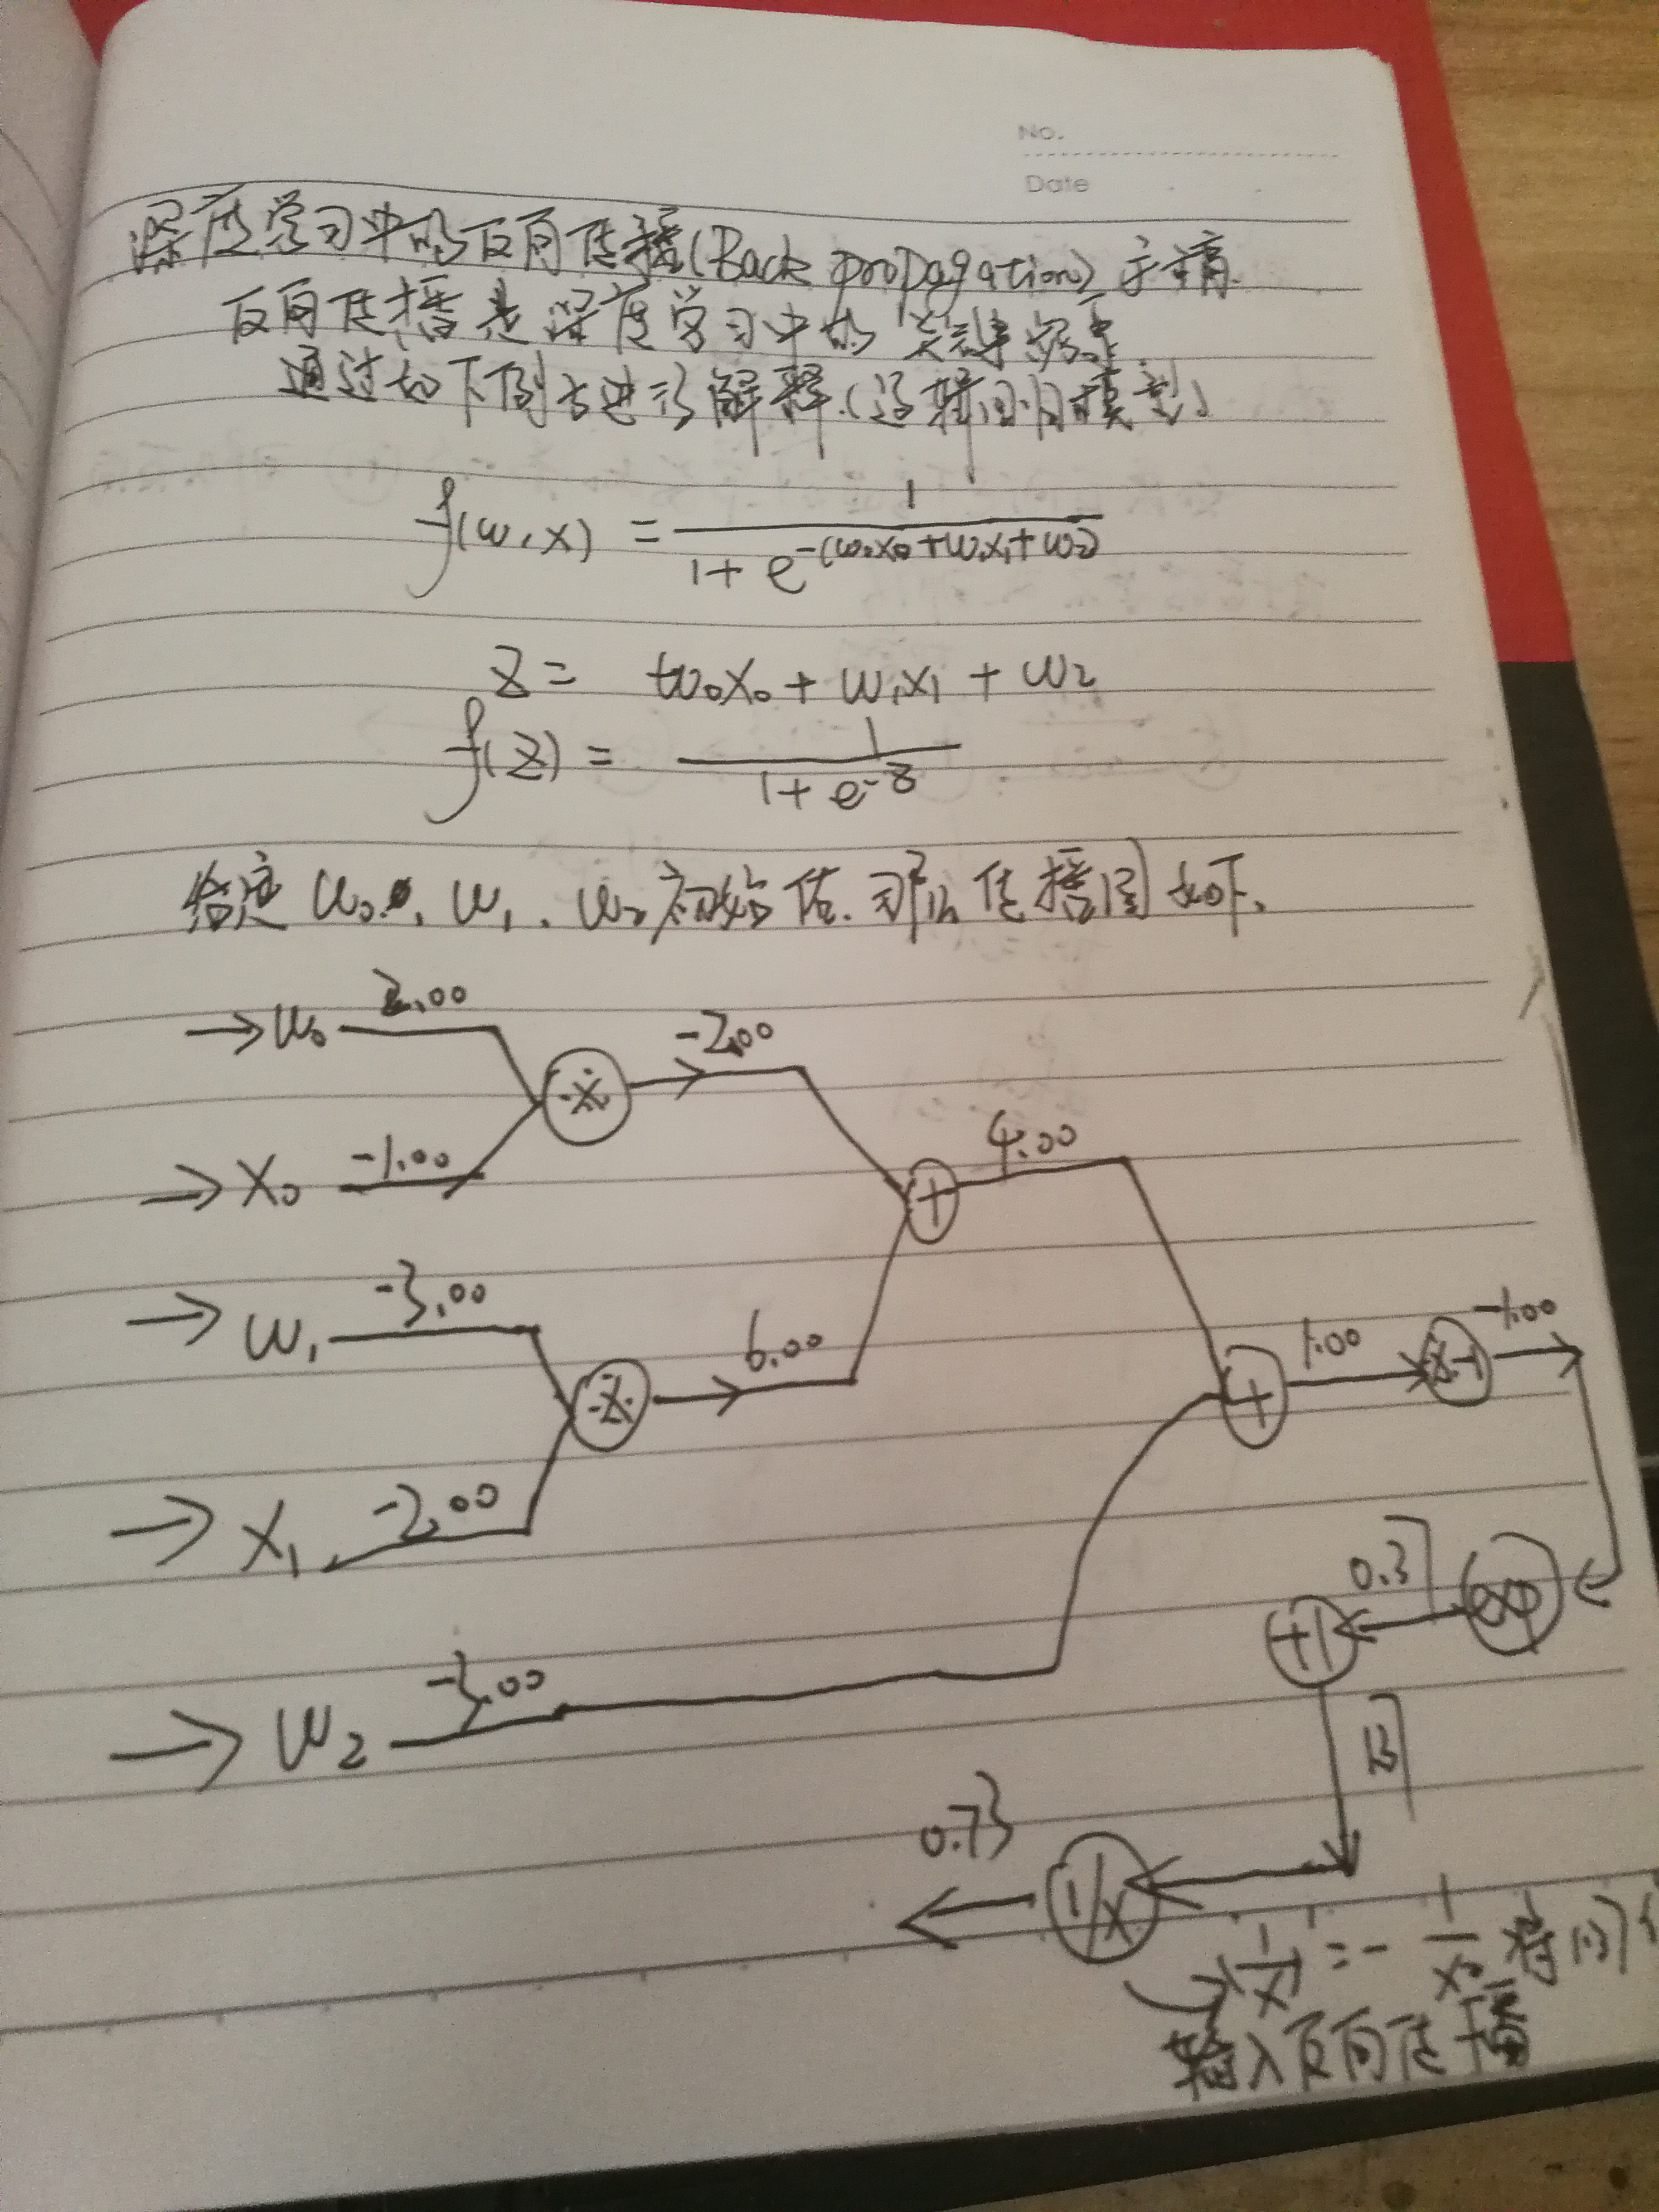 No.
Date
深度学习中的反向传播(Back propagation)手稿.
反向传播是深度学习中的关键步骤.
通过如下例子进行解释.(逻辑回归模型)
f(w,x) = 1/(1+e^-(w₀x₀+w₁x₁+w₂))
z = w₀x₀ + w₁x₁ + w₂
f(z) = 1/(1+e^-z)
给定 w₀、w₁、w₂初始值.那么传播图如下、
→w₀ 2.00 * -2.00
→X₀ -1.00 + 4.00
→w₁ -3.00 * 6.00 + 1.00 *-1 -1.00
→X₁ -2.00 +1 0.37 exp
→w₂ -3.00 1.37
0.73 1/x
→(1/x)' = -1/x² 将1.37
输入反向传播